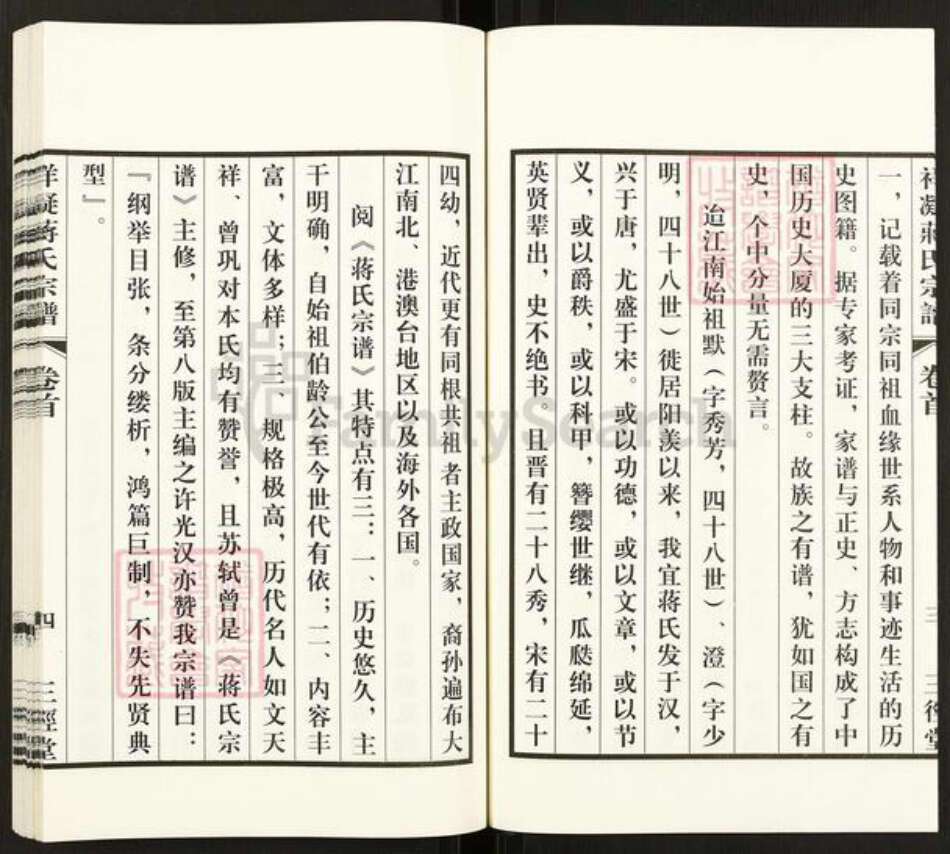 祥凝蔣氏宗譜
卷首
三
三徑堂
一，记载着同宗同祖血缘世系人物和事迹生活的历
史图籍。据专家考证，家谱与正史、方志构成了中
国历史大厦的三大支柱。故族之有谱，犹如国之有
史，个中分量无需赘言。
迨江南始祖默（字秀芳，四十八世）、澄（字少
明，四十八世）徙居阳羡以来，我宜蒋氏发于汉，
兴于唐，尤盛于宋。或以功德，或以文章，或以节
义，或以爵秩，或以科甲，簪缨世继，瓜瓞绵延，
英贤辈出，史不绝书，且晋有二十八秀，宋有二十
四幼，近代更有同根共祖者主政国家，裔孙遍布大
江南北、港澳台地区以及海外各国。
阅《蒋氏宗谱》其特点有三：一、历史悠久，主
干明确，自始祖伯龄公至今世代有依；二、内容丰
富，文体多样；三、规格极高，历代名人如文天
祥、曾巩对本氏均有赞誉，且苏轼曾是《蒋氏宗
谱》主修，至第八版主编之许光汉亦赞我宗谱曰：
『纲举目张，条分缕析，鸿篇巨制，不失先贤典
型』。
祥凝蒋氏宗譜
卷首
四
三徑堂
FamilySearch